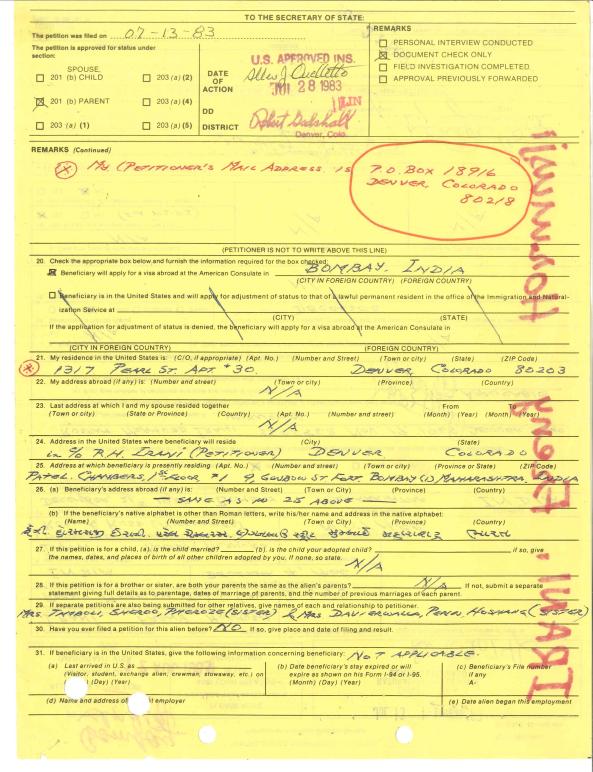 TO THE SECRETARY OF STATE:
The petition was filed on 07-13-83
The petition is approved for status under section:
SPOUSE,
201 (b) CHILD
203 (a) (2)
201 (b) PARENT
203 (a) (4)
203 (a) (1)
203 (a) (5)
DATE OF ACTION
DD
DISTRICT
U.S. APPROVED INS.
28 1983
LIN
Denver, Colo.
REMARKS
PERSONAL INTERVIEW CONDUCTED
DOCUMENT CHECK ONLY
FIELD INVESTIGATION COMPLETED
APPROVAL PREVIOUSLY FORWARDED
REMARKS (Continued)
MY (PETITIONER'S MAIL ADDRESS IS P.O. BOX 18916
DENVER, COLORADO
80218
(PETITIONER IS NOT TO WRITE ABOVE THIS LINE)
20. Check the appropriate box below and furnish the information required for the box checked:
Beneficiary will apply for a visa abroad at the American Consulate in BOMBAY. INDIA
(CITY IN FOREIGN COUNTRY) (FOREIGN COUNTRY)
Beneficiary is in the United States and will apply for adjustment of status to that of a lawful permanent resident in the office of the Immigration and Natural-
ization Service at
(CITY) (STATE)
If the application for adjustment of status is denied, the beneficiary will apply for a visa abroad at the American Consulate in
(CITY IN FOREIGN COUNTRY) (FOREIGN COUNTRY)
21. My residence in the United States is: (C/O, if appropriate) (Apt. No.) (Number and Street) (Town or city) (State) (ZIP Code)
1317 PEARL ST. APT. #30. DENVER, COLORADO 80203
22. My address abroad (if any) is: (Number and street) (Town or city) (Province) (Country)
N/A
23. Last address at which I and my spouse resided together From To
(Town or city) (State or Province) (Country) (Apt. No.) (Number and street) (Month) (Year) (Month) (Year)
N/A
24. Address in the United States where beneficiary will reside (City) (State)
in c/o R.H. IRANI (PETITIONER) DENVER COLORADO
25. Address at which beneficiary is presently residing (Apt. No.) (Number and street) (Town or city) (Province or State) (ZIP Code)
PATEL. CHAMBERS, 1ST FLOOR #1 9, FORT, BOMBAY (1) MAHARASHTRA. INDIA
26. (a) Beneficiary's address abroad (if any) is: (Number and Street) (Town or city) (Province) (Country)
SAME AS NO 25 ABOVE
(b) If the beneficiary's native alphabet is other than Roman letters, write his/her name and address in the native alphabet:
(Name) (Number and Street) (Town or city) (Province) (Country)
27. If this petition is for a child, (a). is the child married? (b). is the child your adopted child? if so, give
the names, dates, and places of birth of all other children adopted by you. If none, so state.
N/A
28. If this petition is for a brother or sister, are both your parents the same as the alien's parents? N/A If not, submit a separate
statement giving full details as to parentage, dates of marriage of parents, and the number of previous marriages of each parent.
29. If separate petitions are also being submitted for other relatives, give names of each and relationship to petitioner.
MRS. SHEROO, PHEROZE (SISTER) & MRS DAVIERWALLA, PERIN, HOSHANG (SISTER)
30. Have you ever filed a petition for this alien before? NO If so, give place and date of filing and result.
31. If beneficiary is in the United States, give the following information concerning beneficiary: NOT APPLICABLE.
(a) Last arrived in U.S. as
(Visitor, student, exchange alien, crewman, stowaway, etc.) on
(Day) (Year)
(b) Date beneficiary's stay expired or will
expire as shown on his Form I-94 or I-95.
(Month) (Day) (Year)
(c) Beneficiary's File number
if any
A-
(d) Name and address of employer
(e) Date alien began this employment